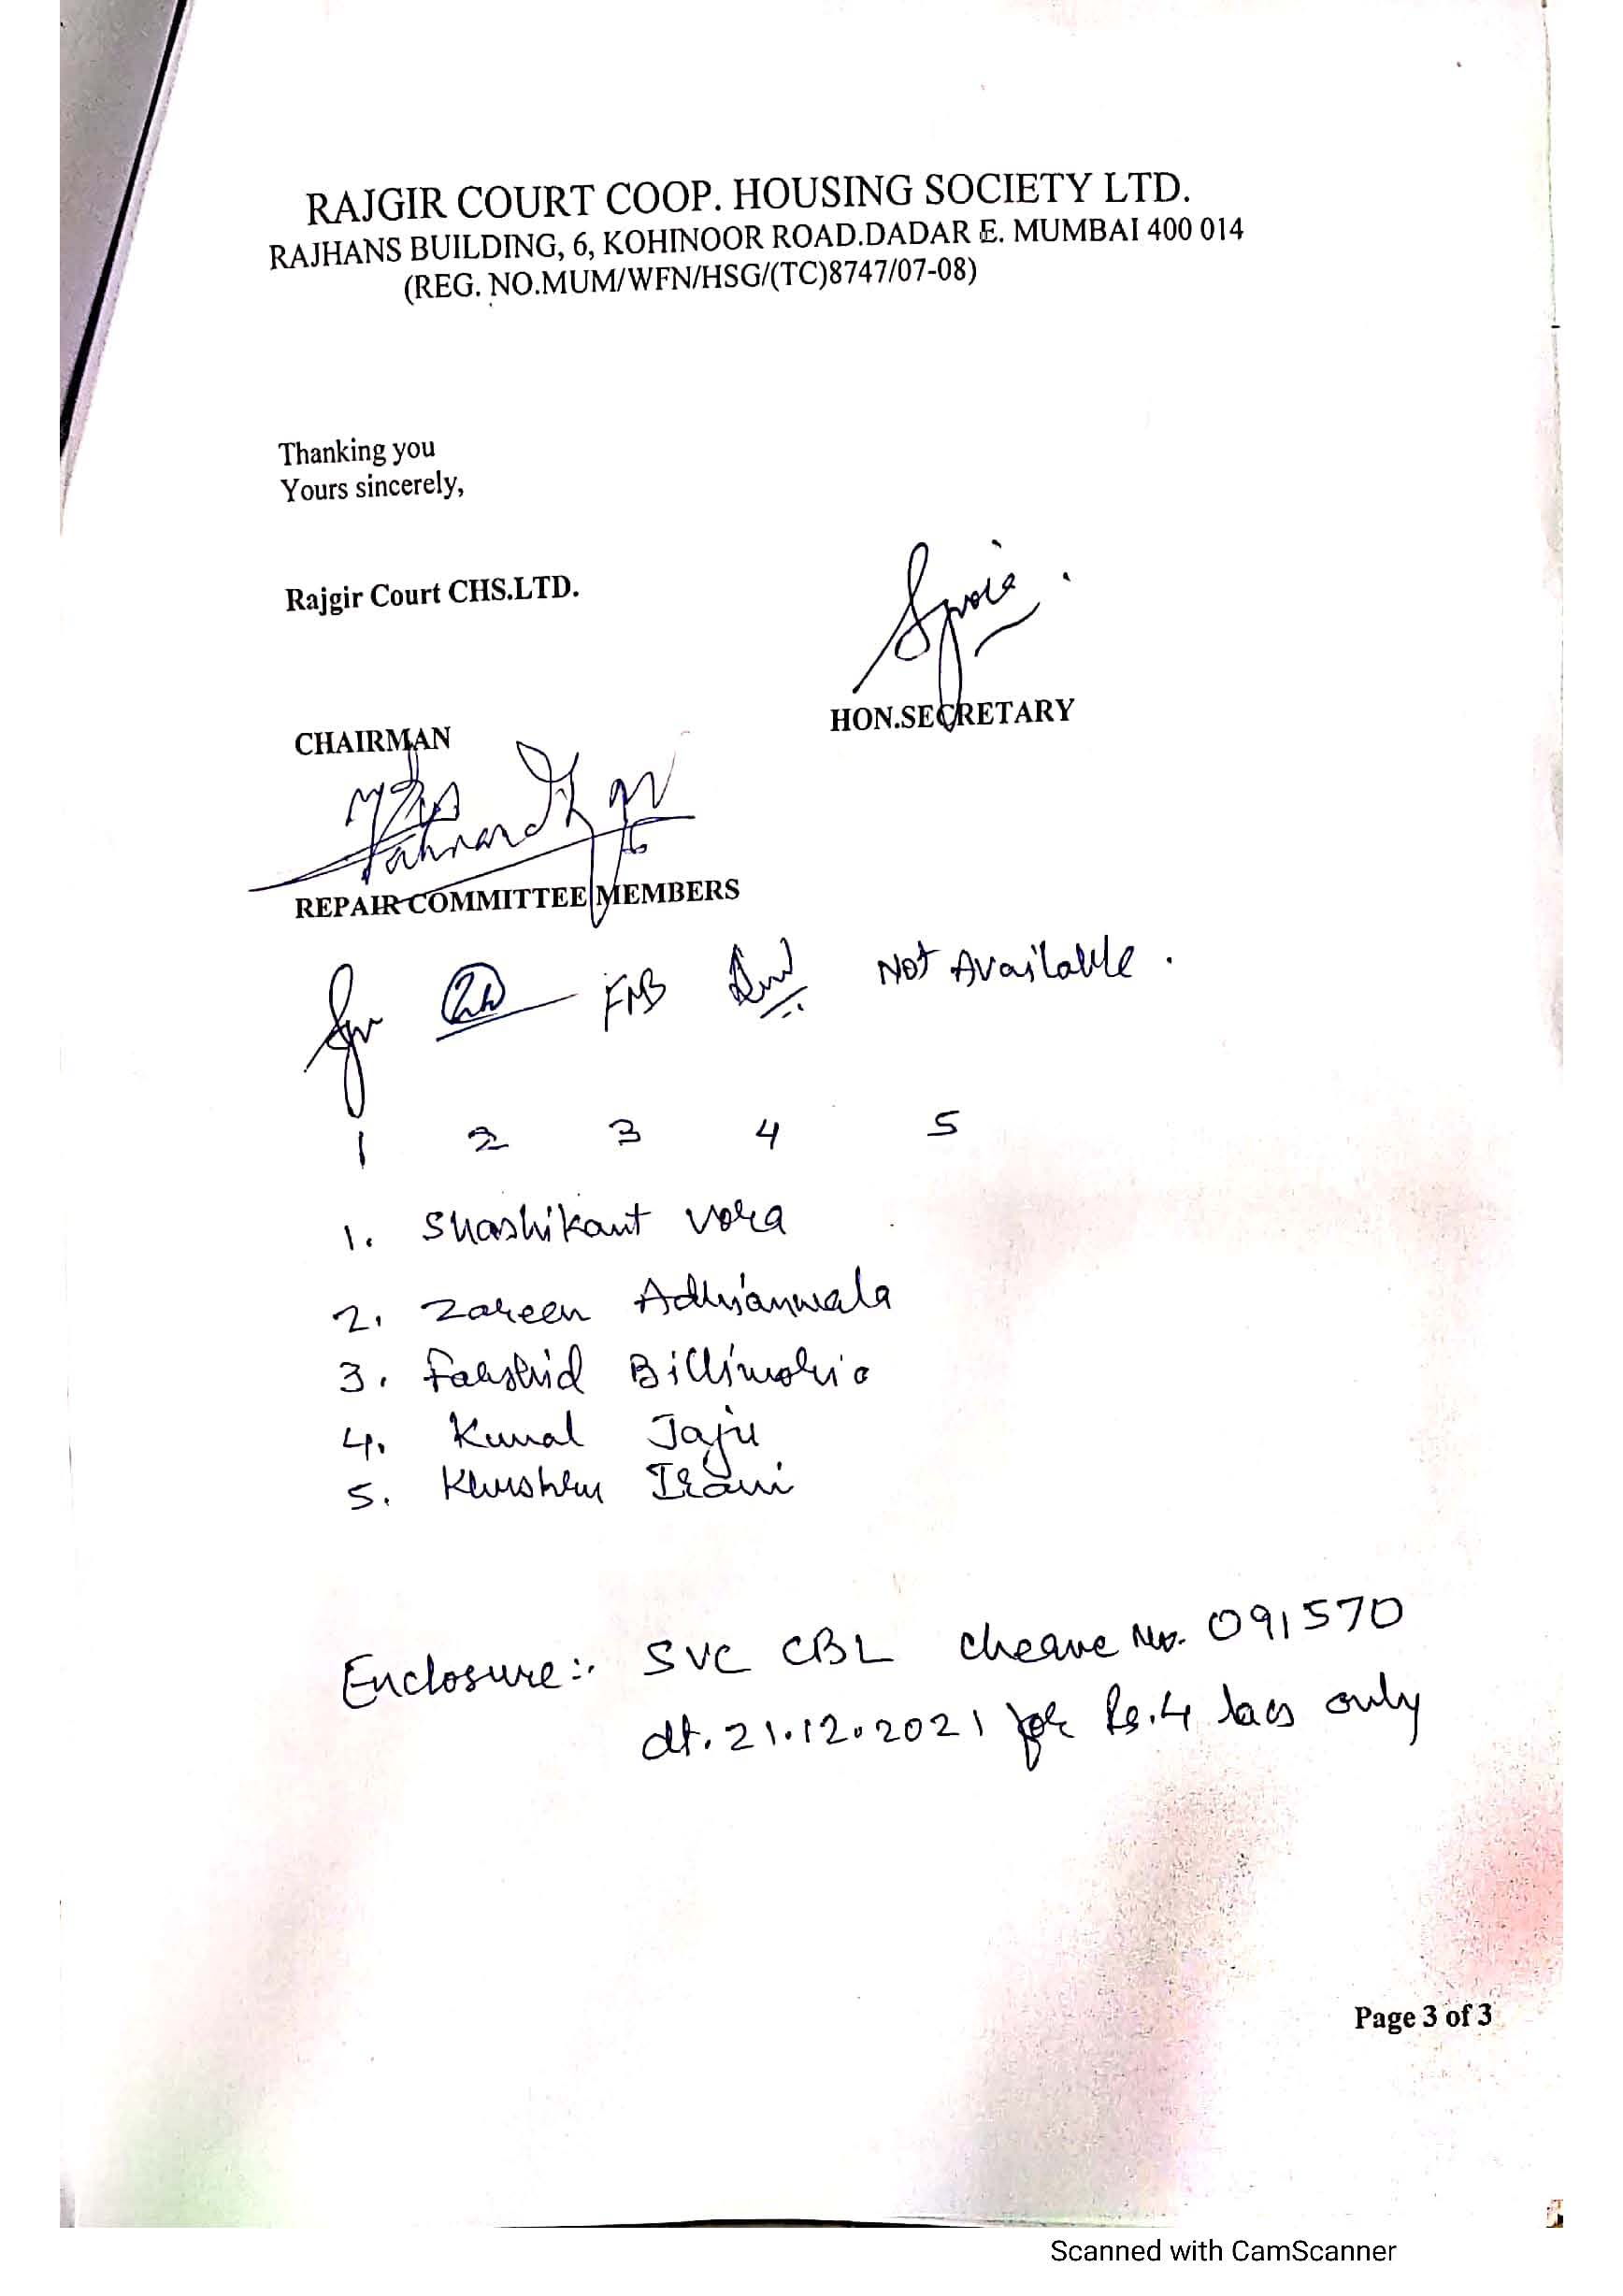 RAJGIR COURT COOP. HOUSING SOCIETY LTD.
RAJHANS BUILDING, 6, KOHINOOR ROAD.DADAR E. MUMBAI 400 014
(REG. NO.MUM/WFN/HSG/(TC)8747/07-08)
Thanking you
Yours sincerely,
Rajgir Court CHS.LTD.
HON.SECRETARY
CHAIRMAN
REPAIR COMMITTEE MEMBERS
FMB Not Available.
1 2 3 4 5
1. Shashikant Vora
2. Zareen Adhianwala
3. Farshid Billimoria
4. Kunal Jaju
5. Irani
Enclosure:. SVC CBL cheque No. 091570
dt. 21.12.2021 for Rs.4 lacs only
Page 3 of 3
Scanned with CamScanner